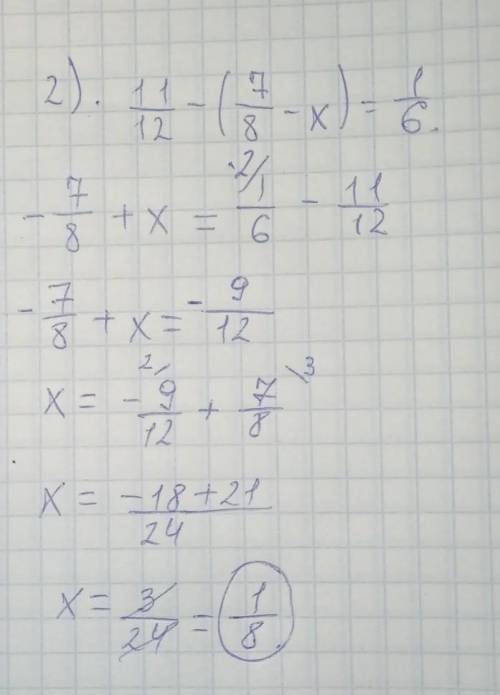 2). 11/12 - (7/8 - x) = 1/6.
-7/8 + x = ·2/ 1/6 - 11/12
-7/8 + x = -9/12
x = 2/ -9/12 + 7/8 \3
x = (-18+21)/24
x = 3/24 = 1/8